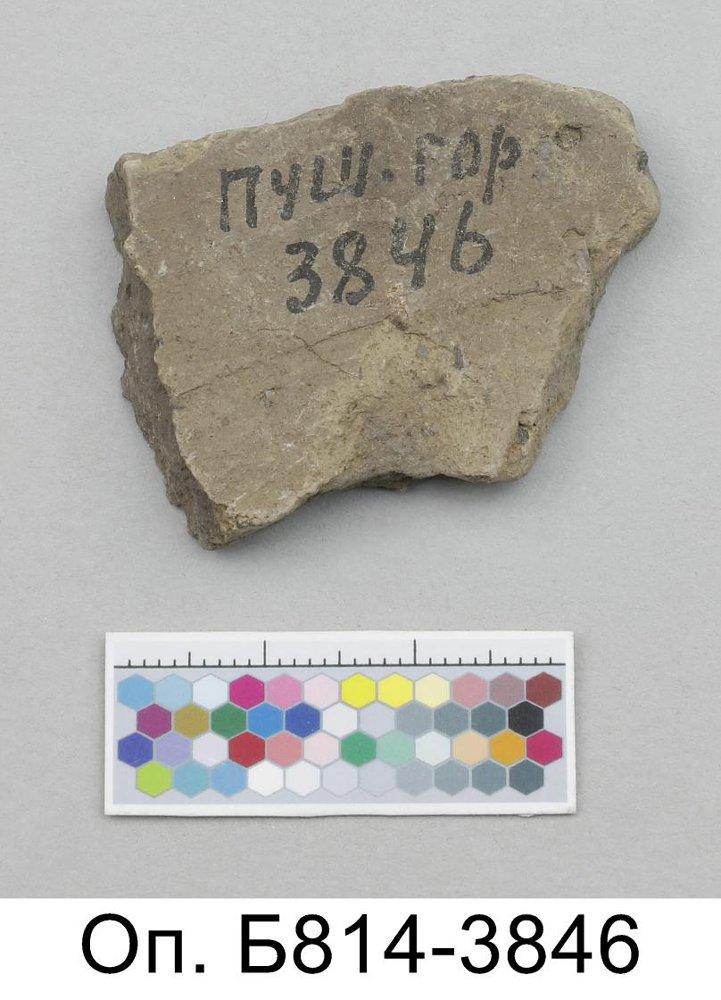 ПУШ. ГОР
3846
Оп. Б814-3846